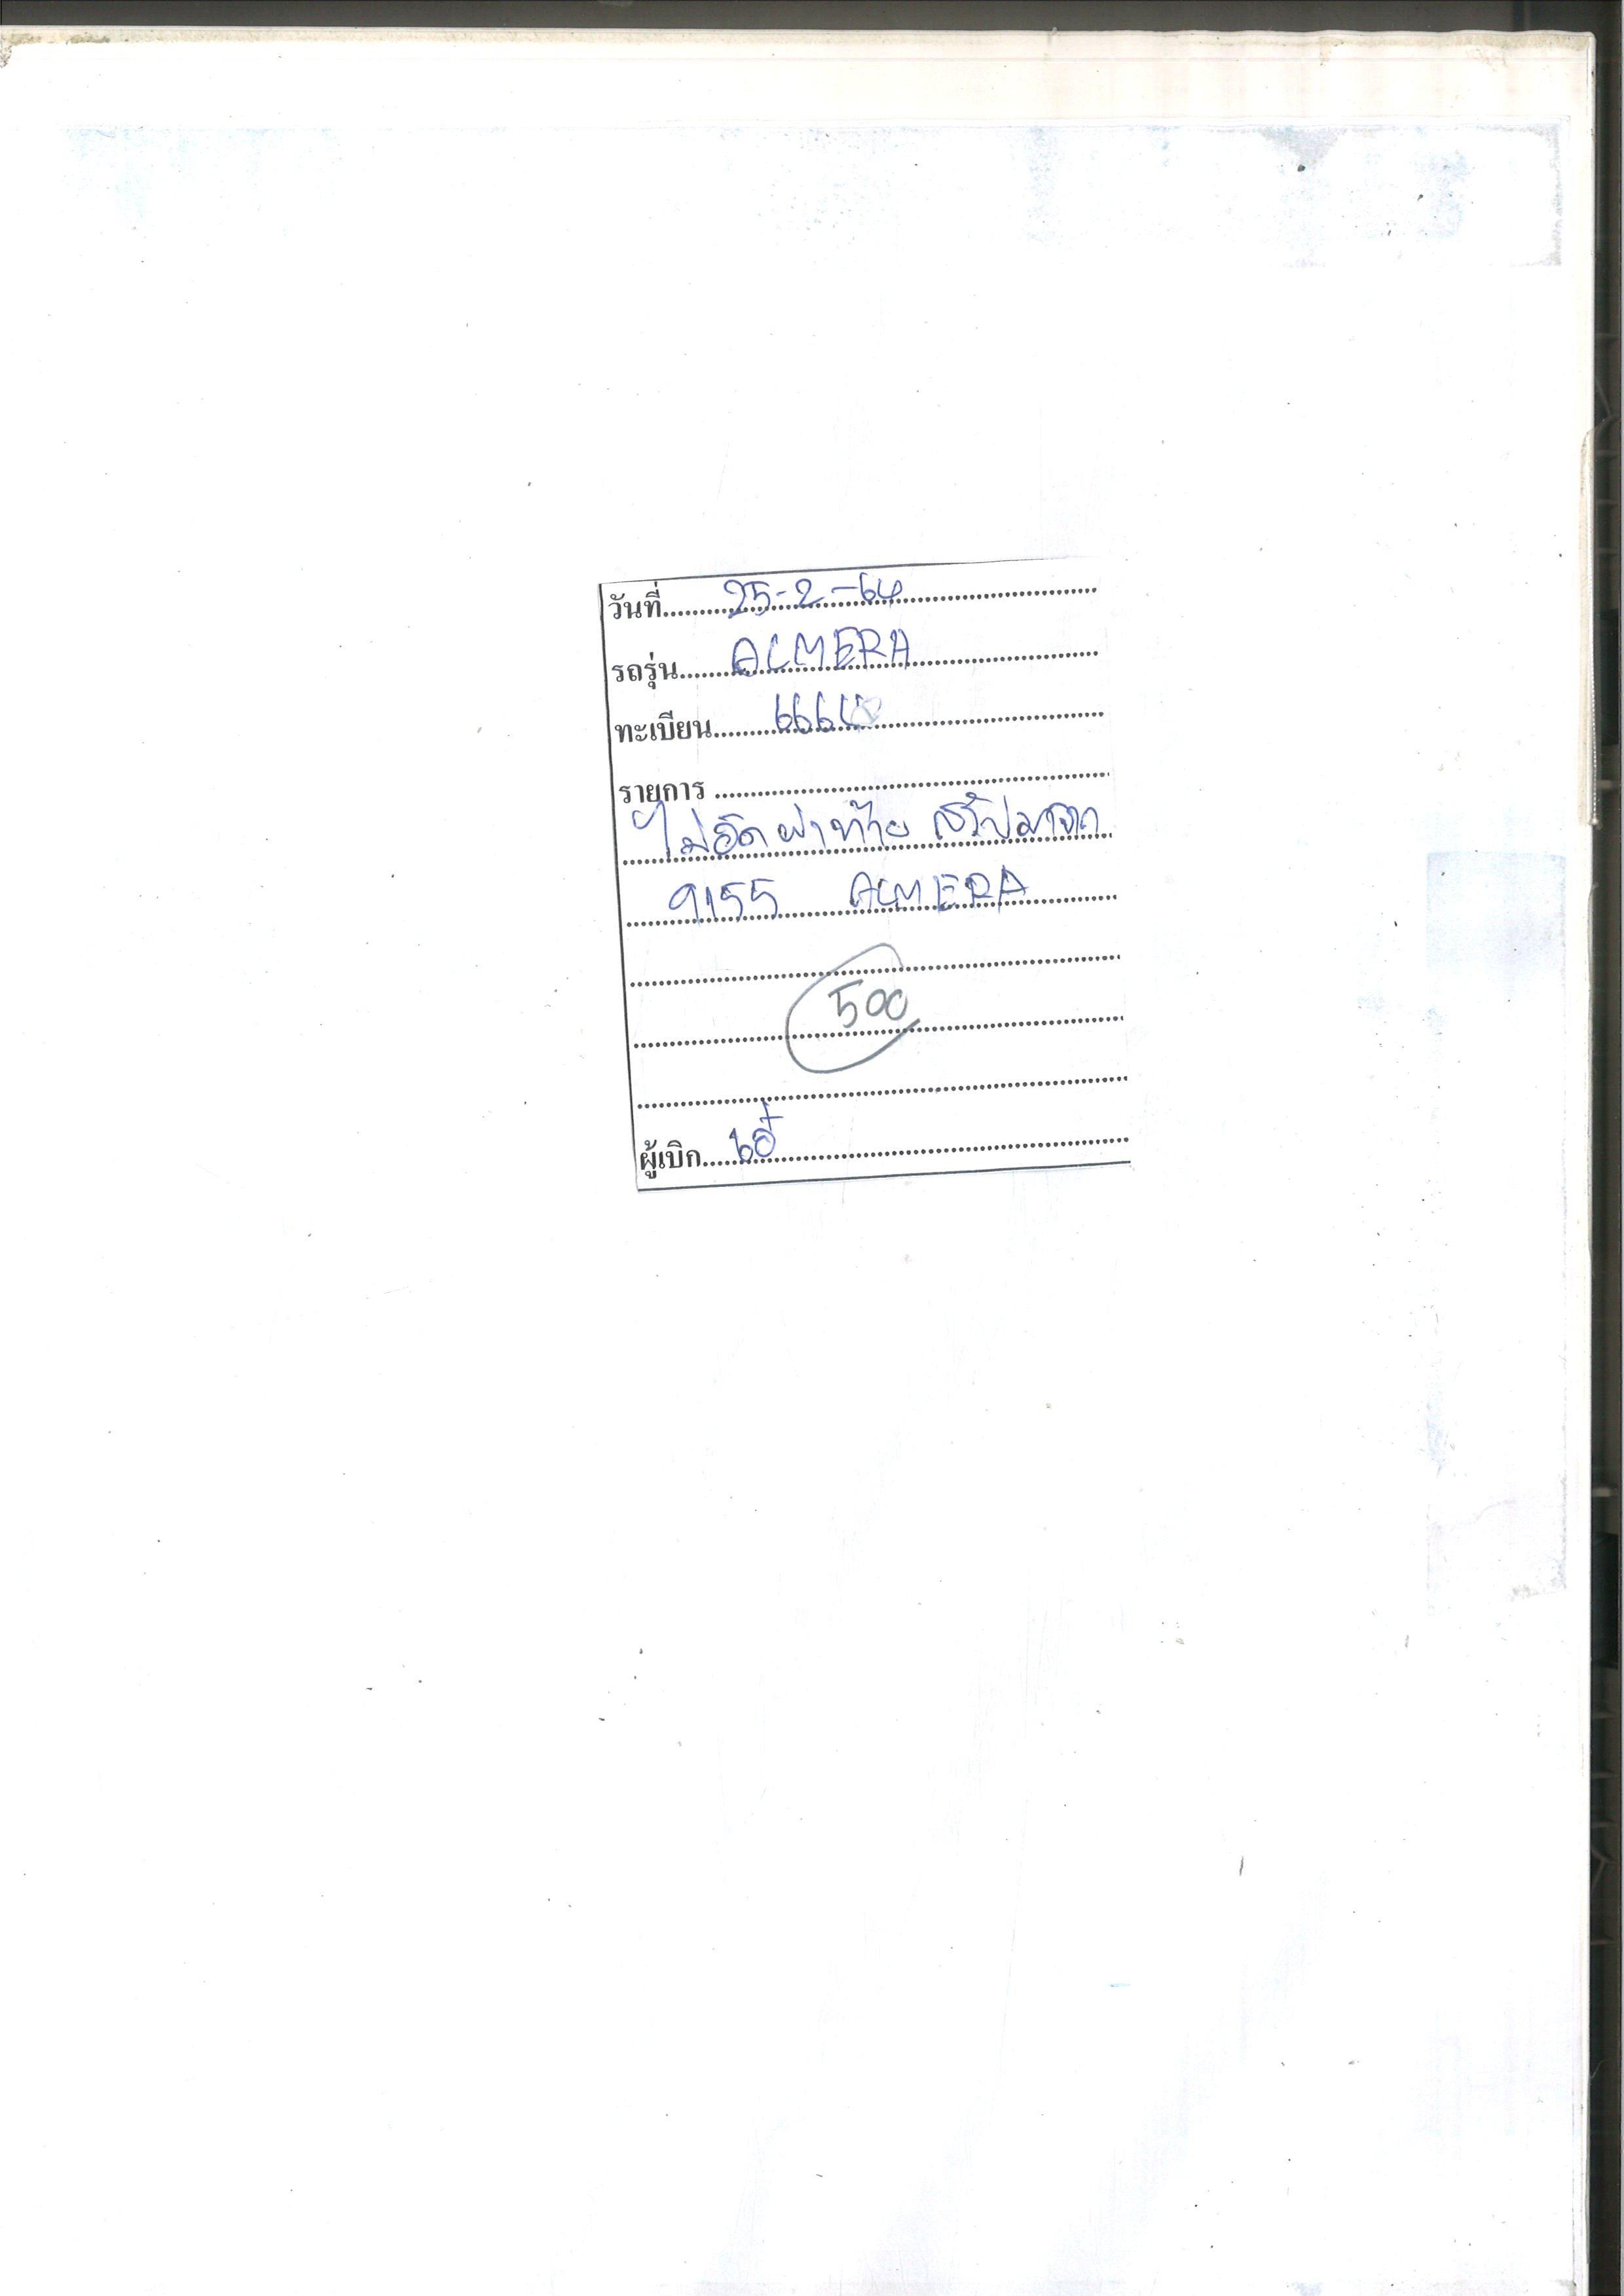 วันที่ 25-2-64
รถรุ่น ALMERA
ทะเบียน 666
รายการ
ไม้อัดฝาท้าย
9155 ALMERA
500
ผู้เบิก